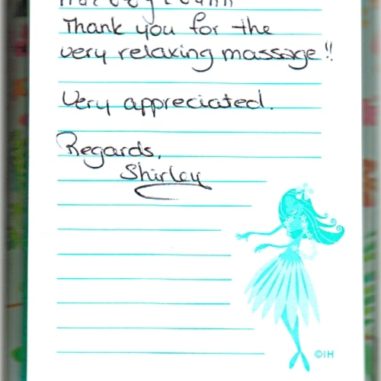 Thank you for the
very relaxing massage!!
Very appreciated.
Regards,
Shirley
©IH